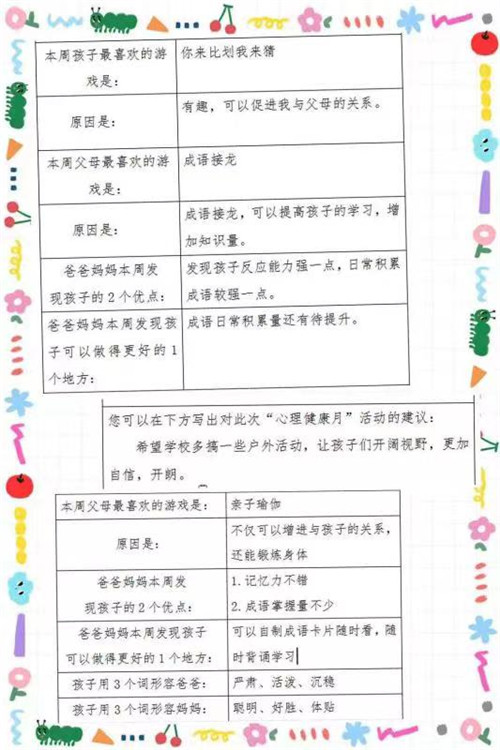 本周孩子最喜欢的游
戏是：
你来比划我来猜
原因是：
有趣，可以促进我与父母的关系。
本周父母最喜欢的游
戏是：
成语接龙
原因是：
成语接龙，可以提高孩子的学习，增
加知识量。
爸爸妈妈本周发
现孩子的2个优点：
发现孩子反应能力强一点，日常积累
成语较强一点。
爸爸妈妈本周发现孩
子可以做得更好的1
个地方：
成语日常积累量还有待提升。
您可以在下方写出对此次“心理健康月”活动的建议：
希望学校多搞一些户外活动，让孩子们开阔视野，更加
自信，开朗。
本周父母最喜欢的游戏是：
亲子瑜伽
原因是：
不仅可以增进与孩子的关系，
还能锻炼身体
爸爸妈妈本周发
现孩子的2个优点：
1.记忆力不错
2.成语掌握量不少
爸爸妈妈本周发现孩子
可以做得更好的1个地方：
可以自制成语卡片随时看，随
时背诵学习
孩子用3个词形容爸爸：
严肃、活泼、沉稳
孩子用3个词形容妈妈：
聪明、好胜、体贴